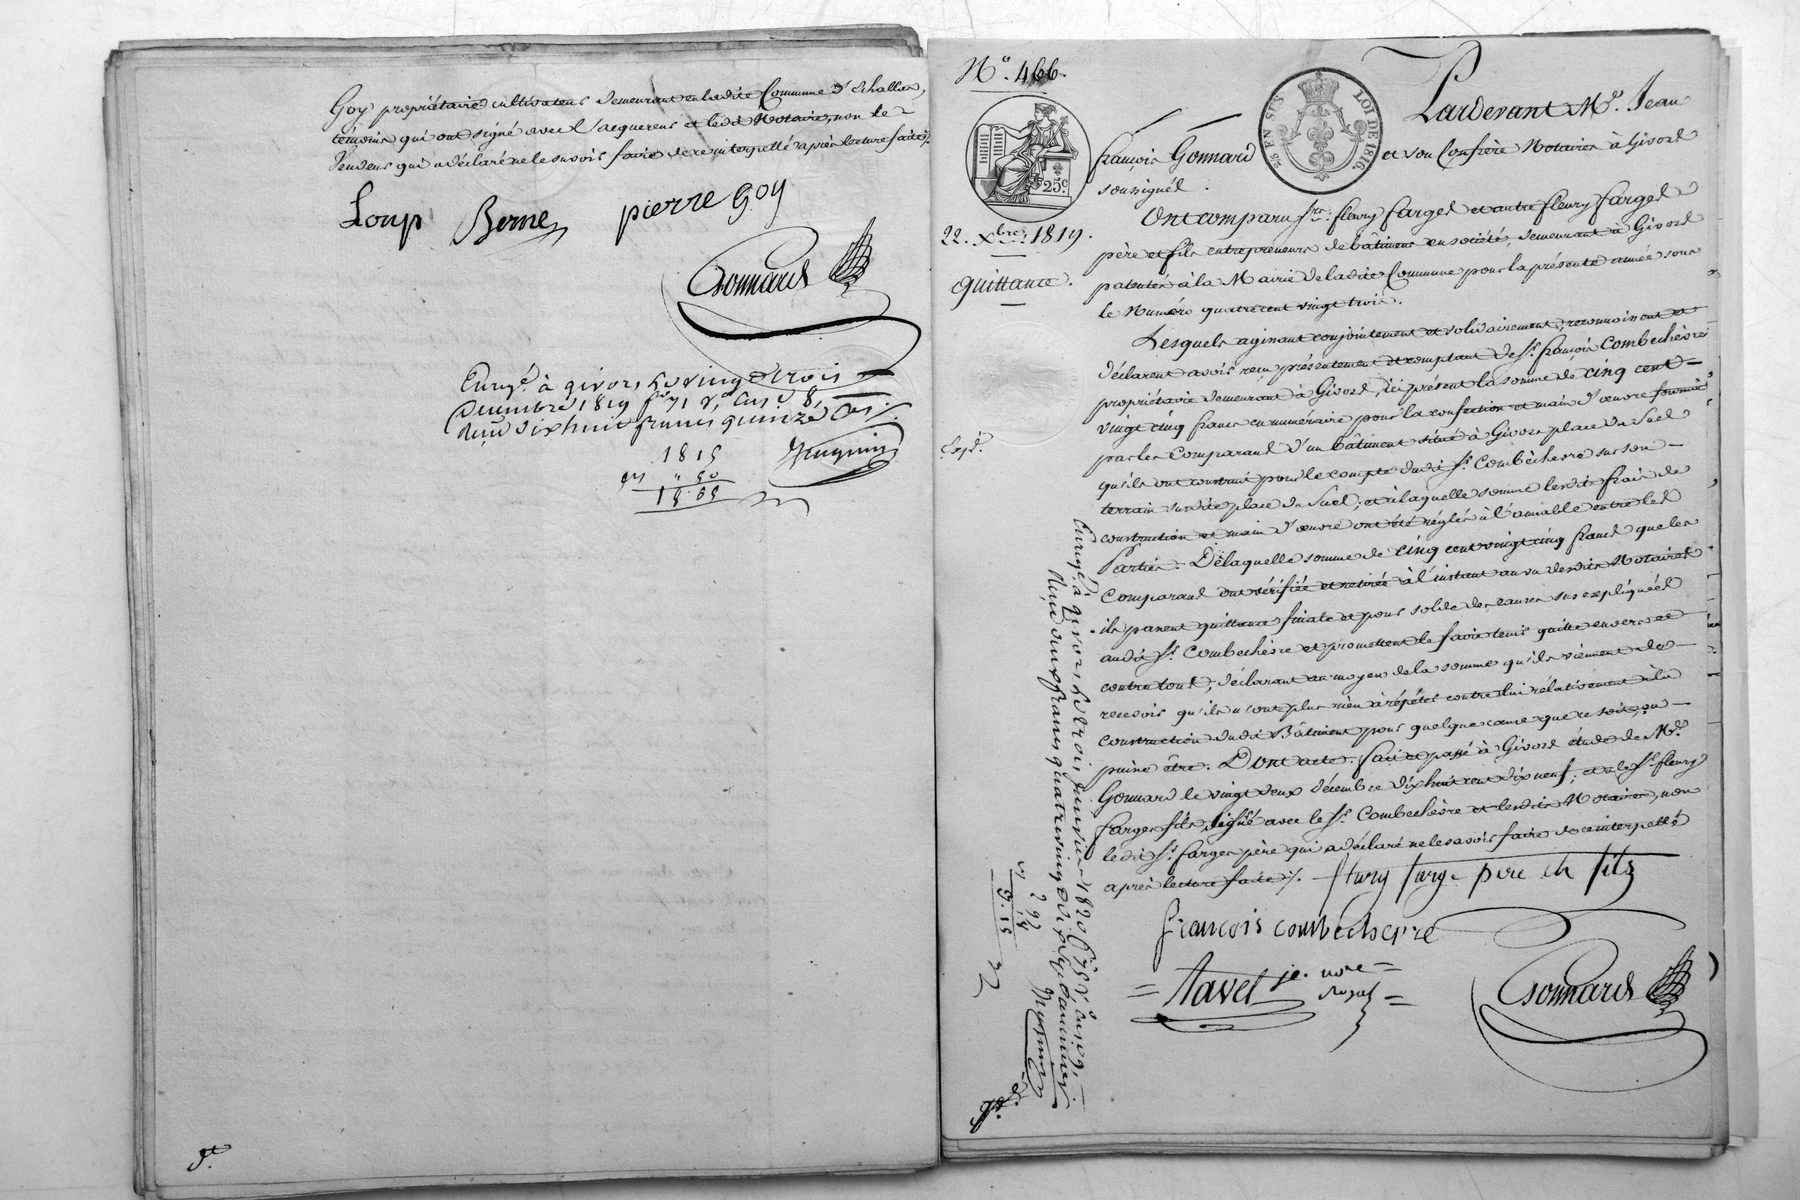 Goy propriétaire cultivateur demeurant en ladite Commune d'Echallas,
témoins qui ont signé avec l'acquereur et ledit Notaire, non le
vendeur qui a déclaré ne le savoir faire de ce interpellé après lecture faite ./.
Loup Berne pierre Goy
Gonnard
Enregé. à givors le vingt trois
Décembre 1819 fo. 71 vo. Case 8
reçu dix huit francs quinze Ces.
1815
50
Nº. 466.
25 EN SUS
LOI DE 1816.
25c
Pardevant Me. Jean
françois Gonnard et son Confrère Notaires à Givors
soussignés.
22. Xbre. 1819.
quittance.
Ont comparu Srs. fleury farges et autre fleury farges
père et fils entrepreneurs de bâtimens en société, demeurant à Givors
patentés à la Mairie de ladite Commune pour la présente année sous
le Numéro quatre cent vingt trois.
Lesquels agissant conjointement et solidairement, reconnoissent et
déclarent avoir reçu présentement et comptant de Sr. françois Combechèvre
propriétaire demeurant à Givors, ici présent la somme de cinq cent
vingt cinq francs en numéraire pour la confection et main d'œuvre fournie
par les Comparans d'un bâtiment situé à Givors place du Suel
Expé.
qu'ils ont construit pour le compte dudit Sr. Combechèvre sur son
terrain susdite place du Suel; et à laquelle somme lesdits frais de
construction et main d'œuvre ont été réglés à l'amiable entre les
Parties. De laquelle somme de cinq cent vingt cinq francs que les
Comparans ont vérifiée et retirée à l'instant au vu desdits Notaires
ils passent quittance finale et pour solde des causes sus expliquées
audit Sr. Combechèvre et promettent le faire tenir quitte envers et
contre tous; déclarant au moyen de la somme qu'ils viennent de
recevoir qu'ils n'ont plus rien à répéter contre lui rélativement à la
construction dudit Bâtiment pour quelque cause que ce soit, ou
puisse être. Dont acte. fait et passé à Givors étude de Me.
Gonnard le vingt deux décembre dix huit cent dix neuf; et le Sr. fleury
farges fils, signé avec le Sr. Combechèvre et lesdits Notaires, non
ledit Sr. farges père qui a déclaré ne le savoir faire de ce interpellé
après lecture faite ./. fleury farge pere et fils
françois combechevre
= Tavel je. nore =
royal =
Gonnard
Enregé. à givors le trois janvier 1820 fo. 75 vo. Case 9.
Reçu deux francs quatre vingt dix sept centimes